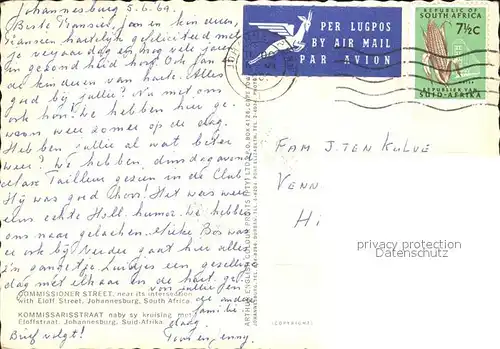 Johannesburg 5.6.69.
Beste Fransien, Jan en kinderen,
Fransien hartelijk gefeliciteerd met
je verjaardag en nog vele jaren
in gezondheid hoor. Ook Jan &
de kinderen van harte. Alles
goed bij jullie? Na met ons
ook hoor. We hebben hier ge
woon weer zomer op de dag.
Hebben jullie al wat beter
weer? We hebben dinsdagavond
Max Tailleur gezien in de Club
Hij was goed hoor! Hat was weer
eens echte Holl. humor. We hebben
ons naar gelachen. Mieke Bos was
er ook bij. Verder gaat hier alles
z'n gangetje. Luidjes een gezellige
dag met elkaar en de hart. gr.
van jullie en
de andere
familie
daag
Brief volgt! Toon en Jenny.
COMMISSIONER STREET, near its intersection
with Eloff Street, Johannesburg, South Africa.
KOMMISSARISSTRAAT naby sy kruising met
Eloffstraat, Johannesburg, Suid-Afrika.
ARTHUR ENGLISH COLOUR PRINTS (PTY) LTD.
(COPYRIGHT)
PER LUGPOS
BY AIR MAIL
PAR AVION
REPUBLIC OF
SOUTH AFRICA
7½c
REPUBLIEK VAN
SUID-AFRIKA
FAM J. TEN KULVE
VENN.
Hi
privacy protection
Datenschutz